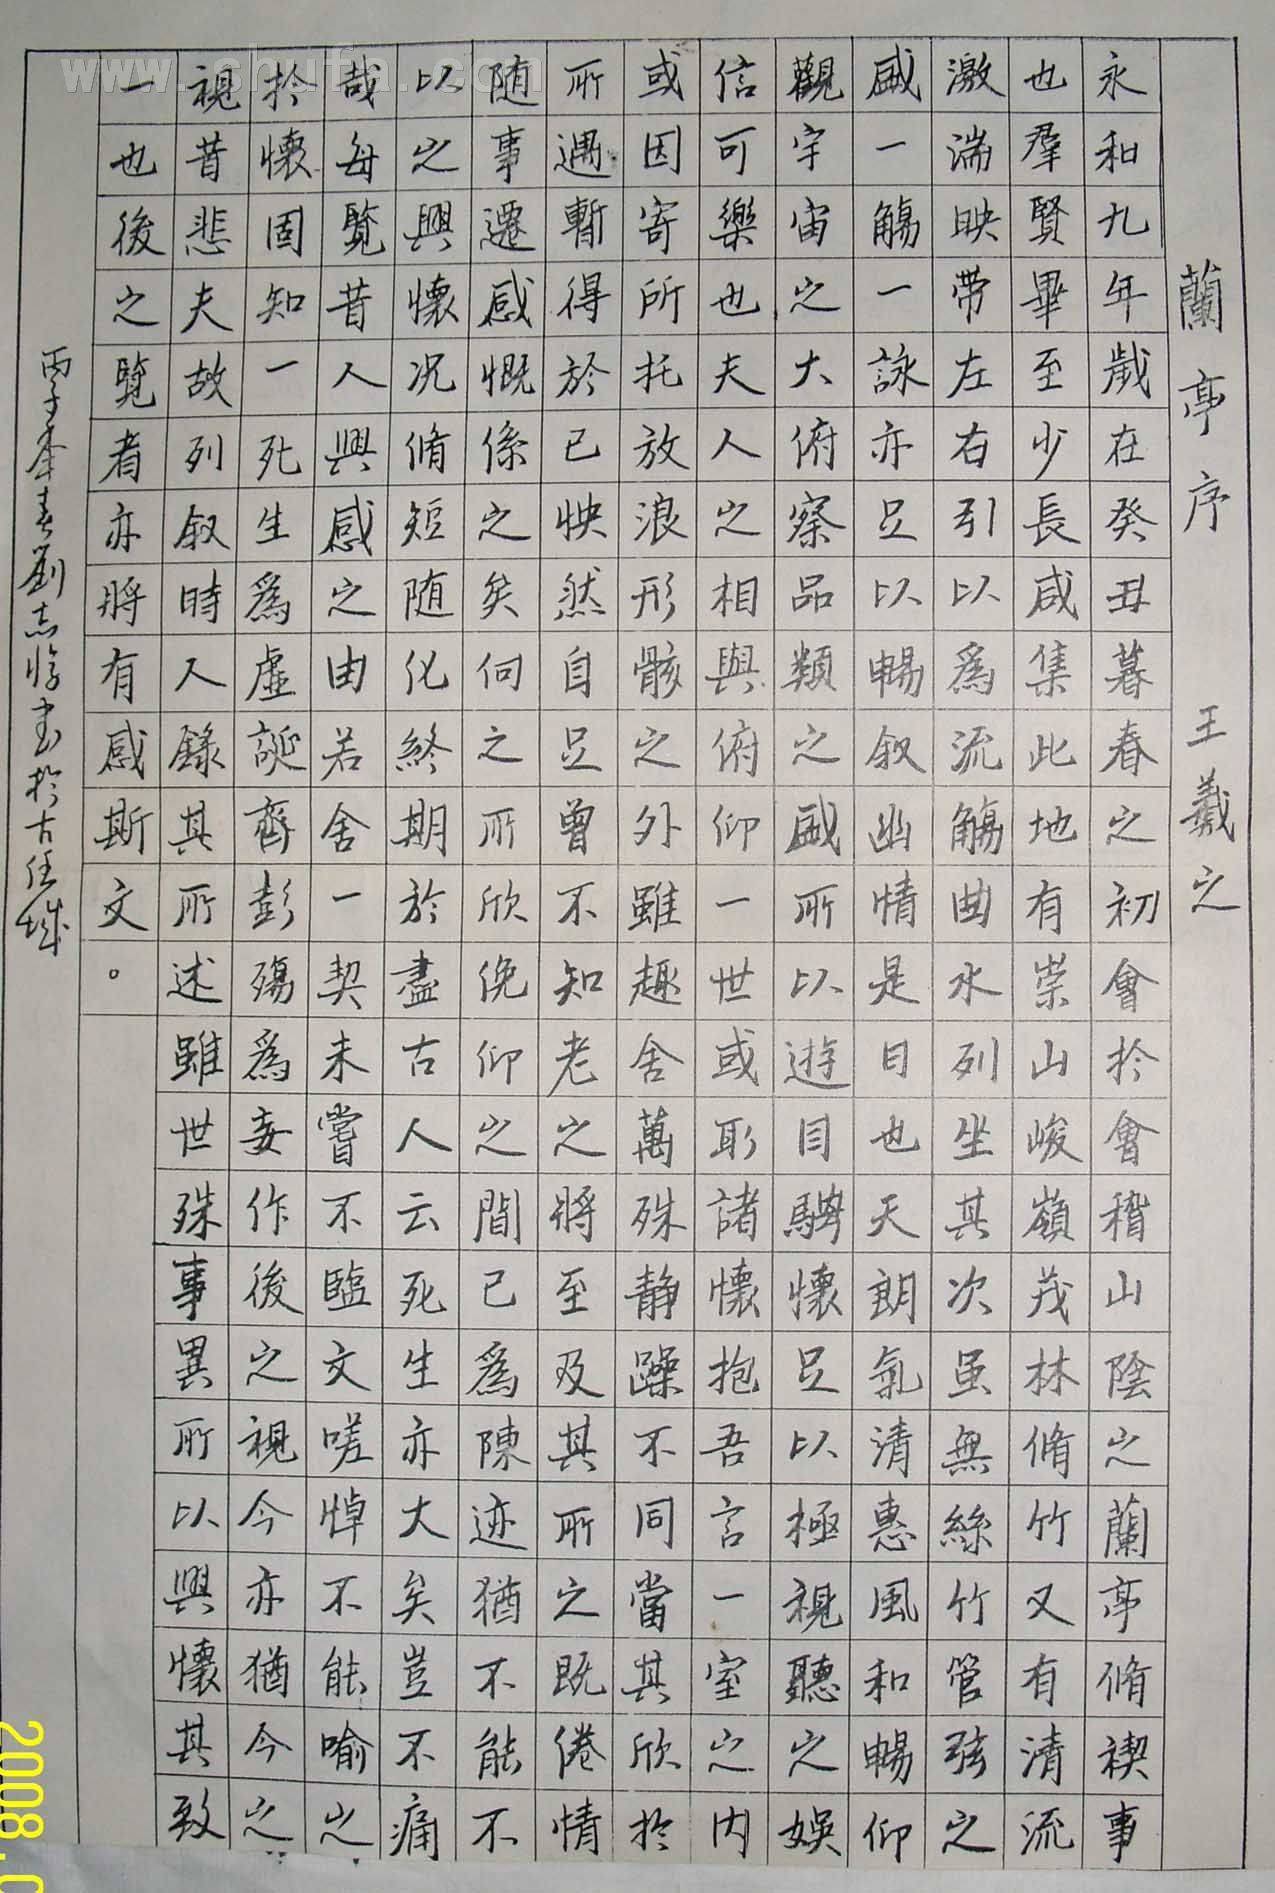 蘭亭序 王羲之
永和九年歲在癸丑暮春之初會於會稽山陰之蘭亭脩禊事
也羣賢畢至少長咸集此地有崇山峻嶺茂林脩竹又有清流
激湍映帶左右引以爲流觴曲水列坐其次虽無絲竹管弦之
盛一觴一詠亦足以暢叙幽情是日也天朗氣清惠風和暢仰
觀宇宙之大俯察品類之盛所以遊目騁懷足以極視聽之娱
信可樂也夫人之相與俯仰一世或取諸懷抱吾言一室之内
或因寄所托放浪形骸之外雖趣舍萬殊静躁不同當其欣於
所遇暫得於己怏然自足曾不知老之將至及其所之既倦情
随事遷感慨係之矣向之所欣俛仰之間已爲陳迹猶不能不
以之興懷况脩短随化終期於盡古人云死生亦大矣豈不痛
哉每覽昔人興感之由若舍一契未嘗不臨文嗟悼不能喻之
於懷固知一死生爲虛誕齊彭殤爲妄作後之視今亦猶今之
視昔悲夫故列叙時人錄其所述雖世殊事異所以興懷其致
一也後之覽者亦將有感斯文。
丙子季春劉志書於古任城
www.shufa.com